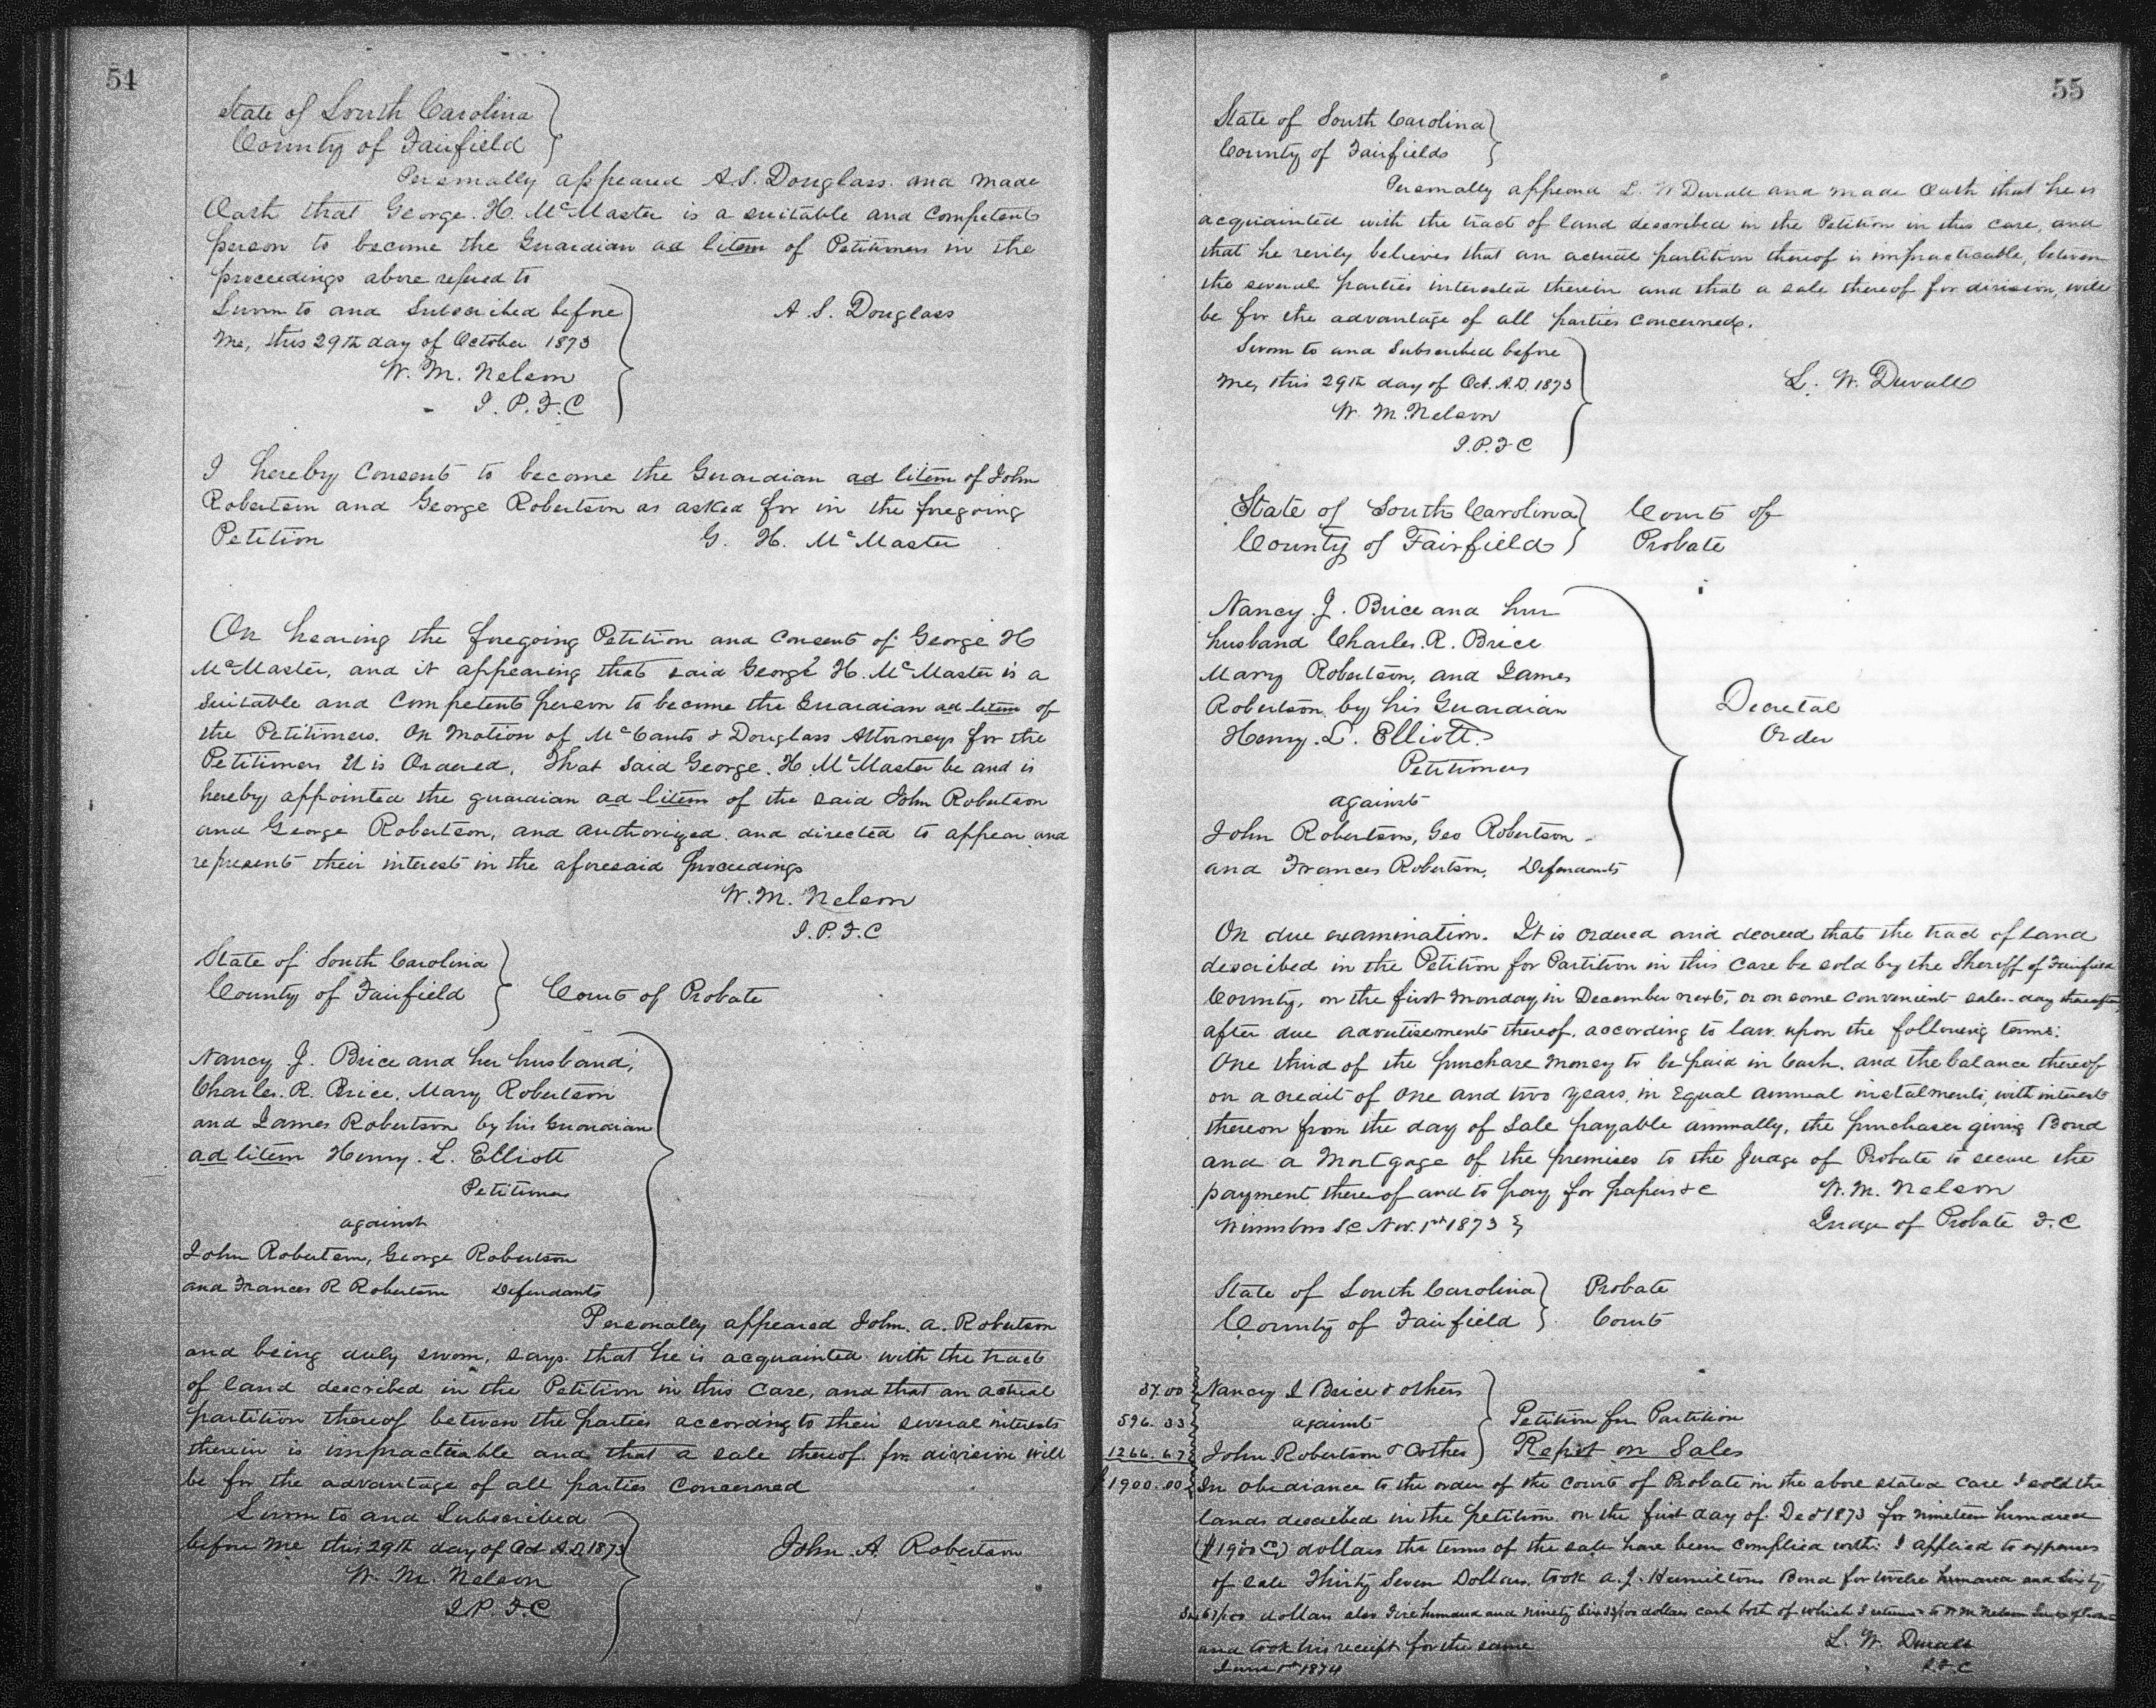 54
State of South Carolina
County of Fairfield
Personally appeared A.S. Douglass and made
Oath that George. H. McMaster is a suitable and Competent
person to become the Guardian ad litem of Petitioners in the
proceedings above refered to
Sworn to and Subscribed before
me, this 29th day of October 1873
A S. Douglass
W. M. Nelson
J. P. F. C
I hereby Consent to become the Guardian ad litem of John
Robertson and George Robertson as asked for in the foregoing
Petition
G. H. McMaster
On hearing the foregoing Petition and Consent of George H
McMaster, and it appearing that said George H. McMaster is a
suitable and Competent person to become the Guardian ad litem of
the Petitioners. On motion of McCants & Douglass Attorneys for the
Petitioners It is Ordered, That said George. H. McMaster be and is
hereby appointed the guardian ad litem of the said John Robertson
and George Robertson, and authorized and directed to appear and
represent their interest in the aforesaid proceedings
W. M. Nelson
J. P. F. C
State of South Carolina
County of Fairfield
Court of Probate
Nancy J. Brice and her husband,
Charles. R. Brice, Mary Robertson
and James Robertson by his Guardian
ad litem Henry. L. Elliott
Petitioners
against
John Robertson, George Robertson
and Frances R Robertson Defendants
Personally appeared John. A. Robertson
and being duly sworn, says that he is acquainted with the tract
of land described in the Petition in this Case, and that an actual
partition thereof between the parties according to their several interests
therein is impracticable and that a sale thereof for division will
be for the advantage of all parties Concerned
Sworn to and Subscribed
before me this 29th day of Oct A.D. 1873
John. A. Robertson
W. M. Nelson
J. P. F. C
55
State of South Carolina
County of Fairfield
Personally appeared L. W Duvall and made Oath that he is
acquainted with the tract of land described in the Petition in this case, and
that he verily believes that an actual partition thereof is impracticable, between
the several parties interested therein and that a sale thereof for division, will
be for the advantage of all parties Concerned.
Sworn to and Subscribed before
me, this 29th day of Oct. A.D. 1873
L. W. Duvall
W. M. Nelson
J. P. F C
State of South Carolina
County of Fairfield
Court of
Probate
Nancy. J. Brice and her
husband Charles. R. Brice
Mary Robertson, and James
Robertson, by his Guardian
Henry. L. Elliott.
Petitioners
against
John Robertson, Geo Robertson
and Frances Robertson, Defendants
Decretal
Order
On due examination. It is ordered and decreed that the tract of land
described in the Petition for Partition in this Case be sold by the Sheriff of Fairfield
County, on the first Monday in December next, or on some convenient sales-day thereafter
after due advertisements thereof, according to law. upon the following terms:
One third of the purchase money to be paid in Cash, and the balance thereof
on a credit of one and two years, in Equal annual instalments, with interest
thereon from the day of Sale payable annually, the purchaser giving Bond
and a Mortgage of the premises to the Judge of Probate to secure the
payment thereof and to pay for papers &c
W. M. Nelson
Winnsboro S.C Nov. 1st 1873
Judge of Probate F. C
State of South Carolina
County of Fairfield
Probate
Court
37.00
596. 33
1266. 67
$1900.00
Nancy J Brice & others
against
John Robertson & Others
Petition for Partition
Report on Sales
In obediance to the order of the Court of Probate in the above stated case I sold the
lands described in the petition. on the first day of Decr 1873 for nineteen hundred
dollars the terms of the sale have been complied with: I applied to expenses
of sale Thirty Seven Dollars, took A. J. Hamiltons Bond for twelve hundred and Sixty
Six 67/100 dollars also Five hundred and ninety Six 33/100 dollars cash both of which I return to W M Nelson
and took his receipt for the same
L. W. Duvall
S. F. C
June 1st 1874